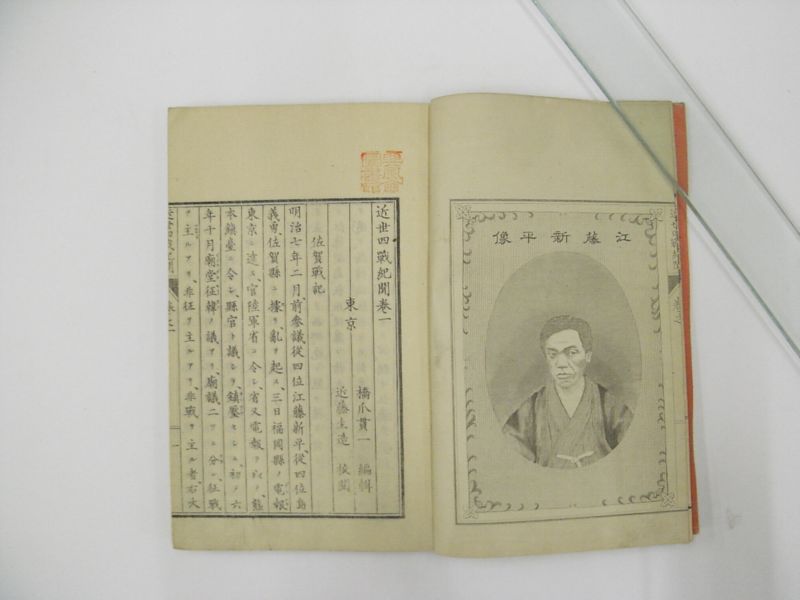 江藤新平像
近世四戰紀聞卷一
東京
橋爪貫一 編輯
近藤圭造 校閲
佐賀戰記
明治七年二月、前參議從四位江藤新平、從四位島
義勇、佐賀縣ニ據リ、亂ヲ起ス、三日福岡縣ノ電報
東京ニ達ス、官陸軍省ニ令シ、省又電報ヲ以、熊
本鎭臺ニ令シ、縣官ト議シテ、鎮壓セシム、初メ六
年十月廟堂征韓ノ議アリ、廟議二ツニ分レ、征戰
ヲ主ルアリ、非征ヲ主ルアリ、非戰ヲ主ル者、右大